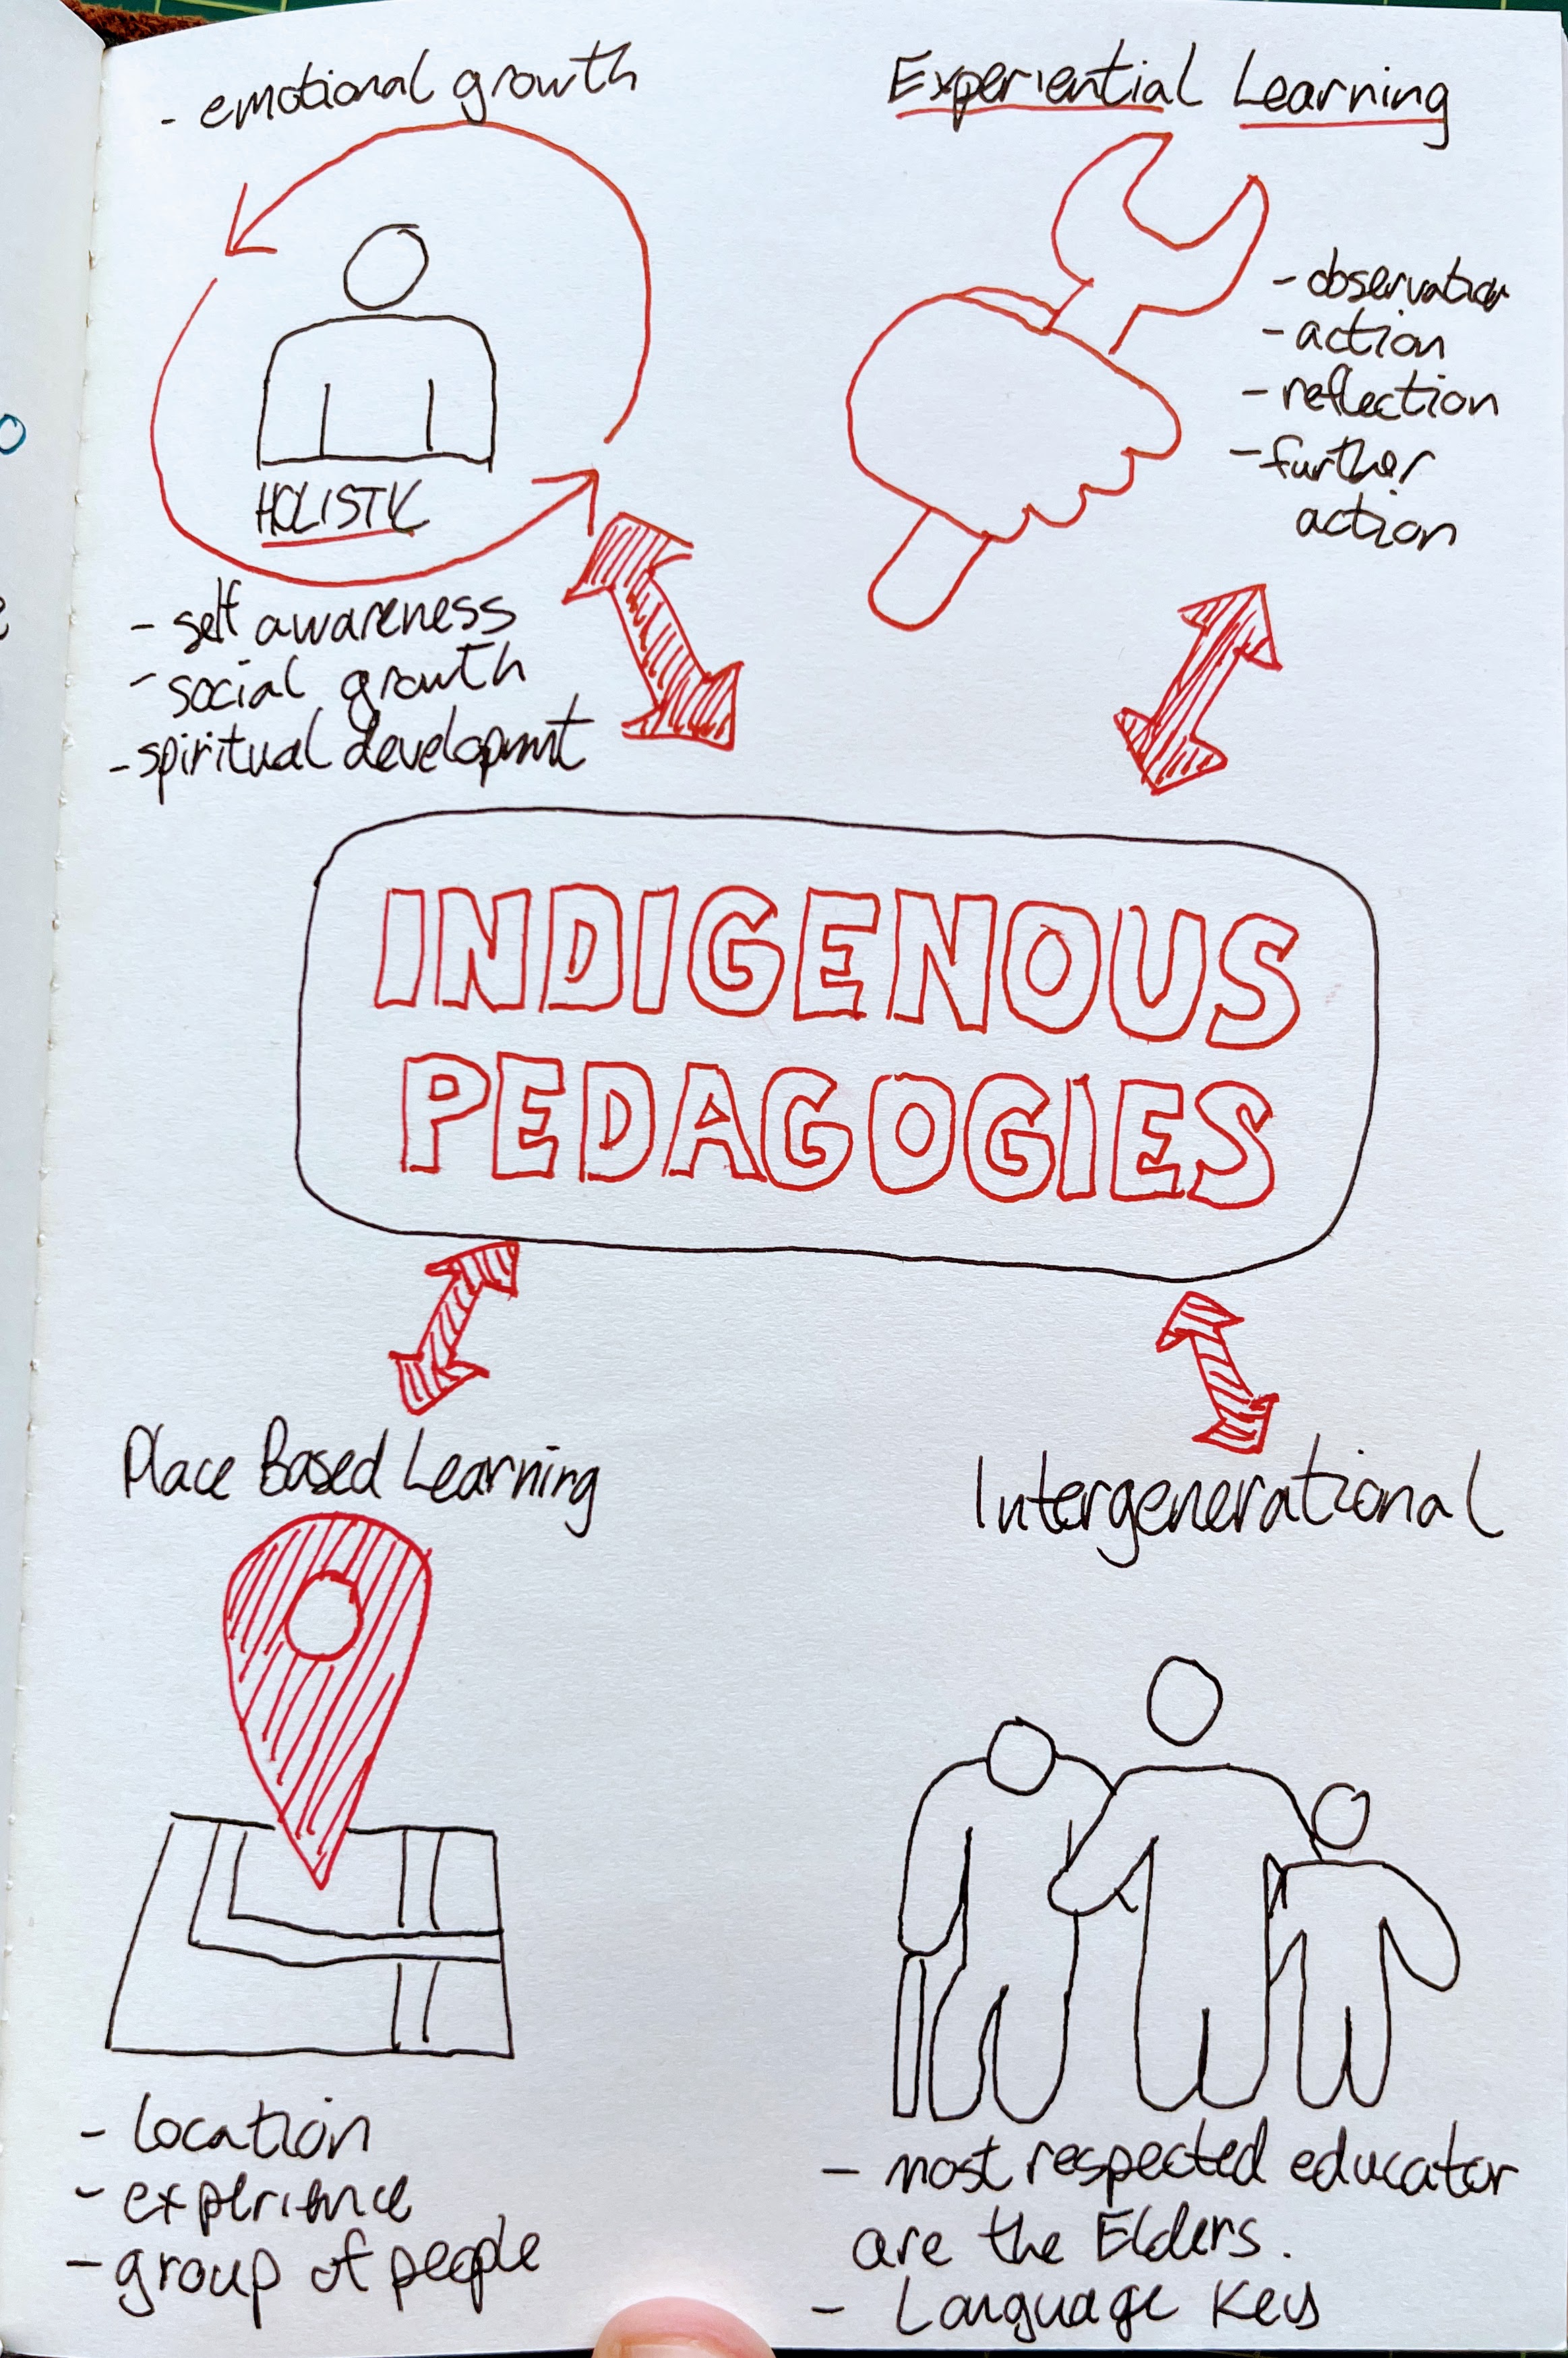 - emotional growth
HOLISTIC
- self awareness
- social growth
- spiritual development
Experiential Learning
- observation
- action
- reflection
- further
action
INDIGENOUS
PEDAGOGIES
Place Based Learning
- Location
- experience
- group of people
Intergenerational
- most respected educator
are the Elders.
- Language Key